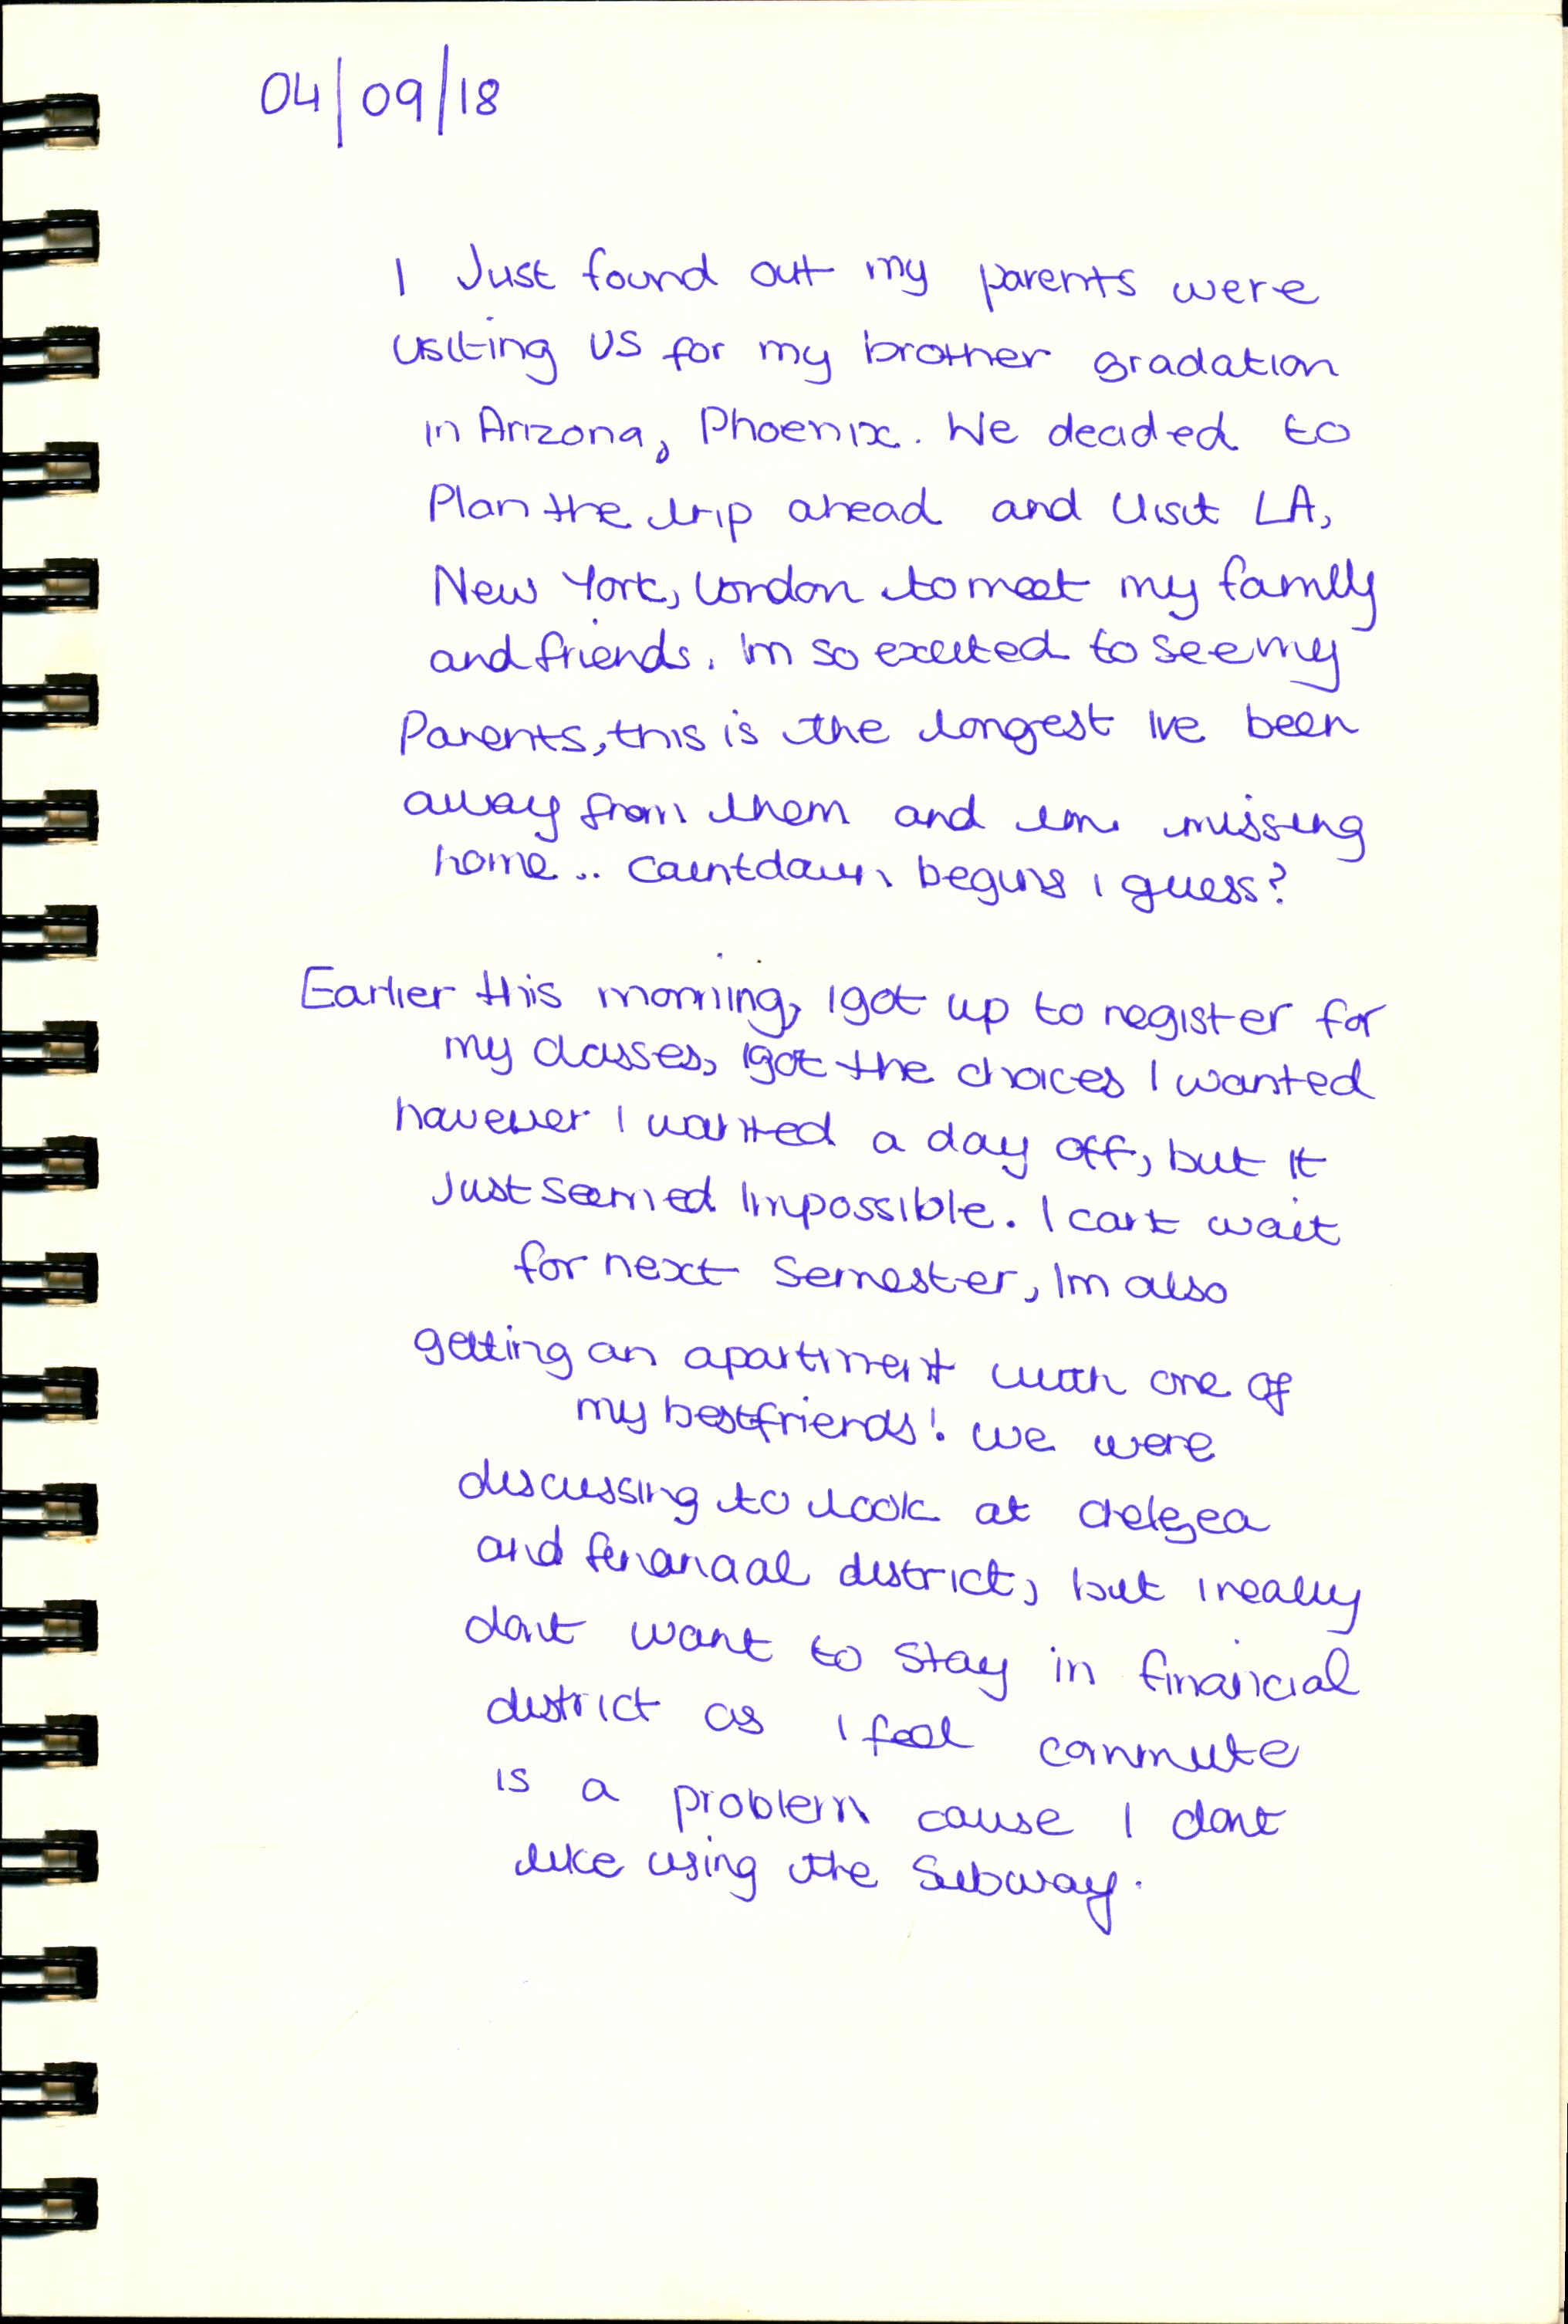 04/09/18
I Just found out my parents were
visiting US for my brother gradation
in Arizona, Phoenix. We decided to
Plan the trip ahead and visit LA,
New York, London to meet my family
and friends. Im so excited to see my
Parents, this is the longest Ive been
away from them and im missing
home.. Countdown begins I guess?
Earlier this morning, I got up to register for
my classes, I got the choices I wanted
however I wanted a day off, but it
Just seemed Impossible. I cant wait
for next semester, Im also
getting an apartment with one of
my bestfriends! We were
discussing to look at chelsea
and financial district, but I really
dont want to stay in financial
district as I feel commute
is a problem cause I dont
like using the Subway.